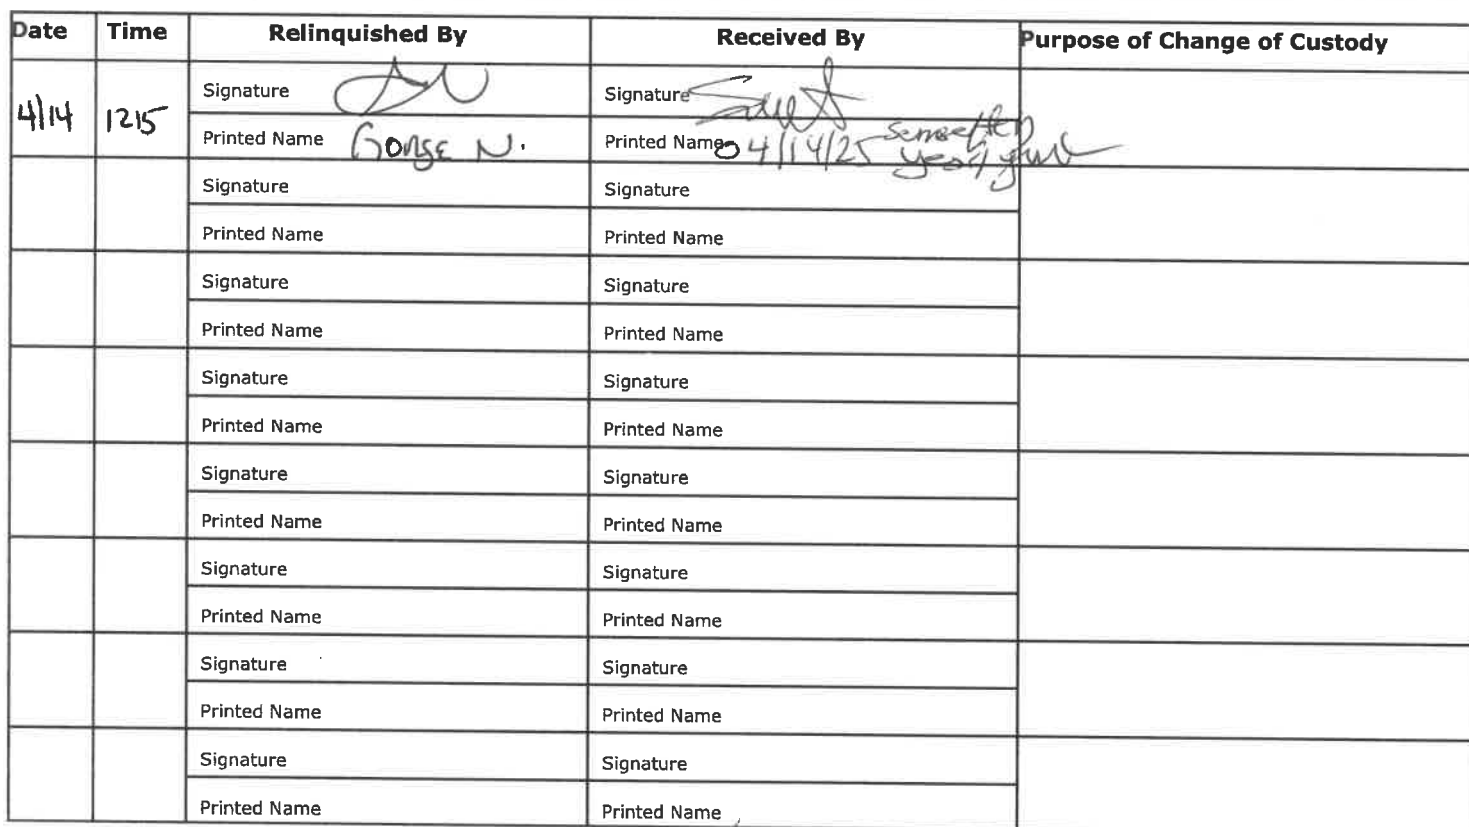 Date Time Relinquished By Received By Purpose of Change of Custody
4/14 1215 Signature Signature
Printed Name Gorge N. Printed Name 04/14/25
Signature Signature
Printed Name Printed Name
Signature Signature
Printed Name Printed Name
Signature Signature
Printed Name Printed Name
Signature Signature
Printed Name Printed Name
Signature Signature
Printed Name Printed Name
Signature Signature
Printed Name Printed Name
Signature Signature
Printed Name Printed Name